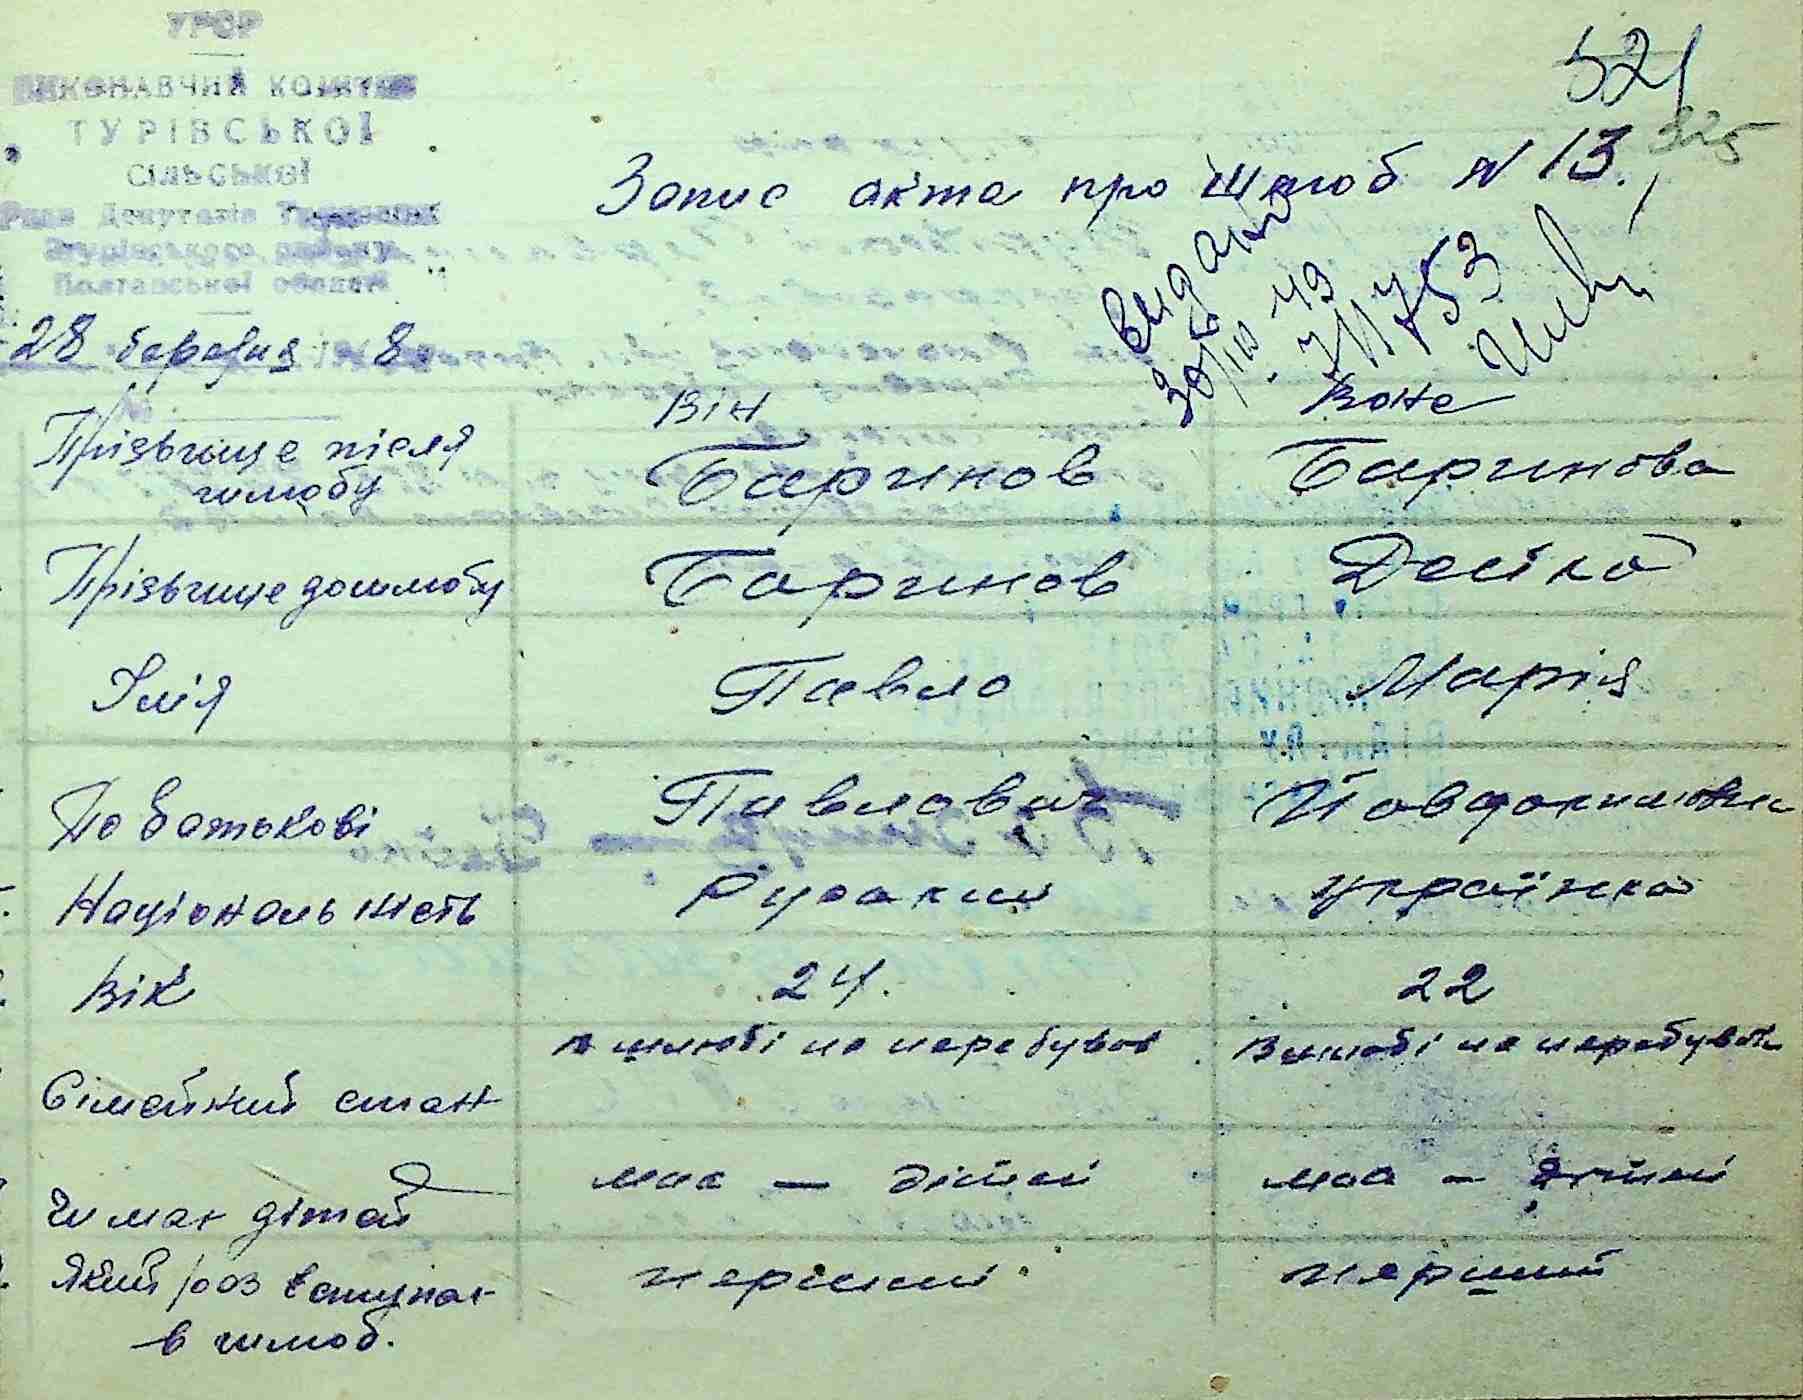 УРСР
ВИКОНАВЧИЙ КОМІТЕТ
ТУРІВСЬКОЇ
СІЛЬСЬКОЇ
Ради Депутатів Трудящих
Згурівського району
Полтавської області
52
325
Запис акта про шлюб N 13.
видано
28 березня 8
Він Вона
Прізвище після шлюбу Баринов Баринова
Прізвище до шлюбу Баринов Дейко
Імʼя Павло Марія
По батькові Павлович Йовдокимовна
Національність Руський українка
Вік 24. 22
Сімейний стан в шлюбі не перебував В шлюбі не перебувала
Чи має дітей має — дітей має — дітей
Який раз вступає в шлюб. перший перший